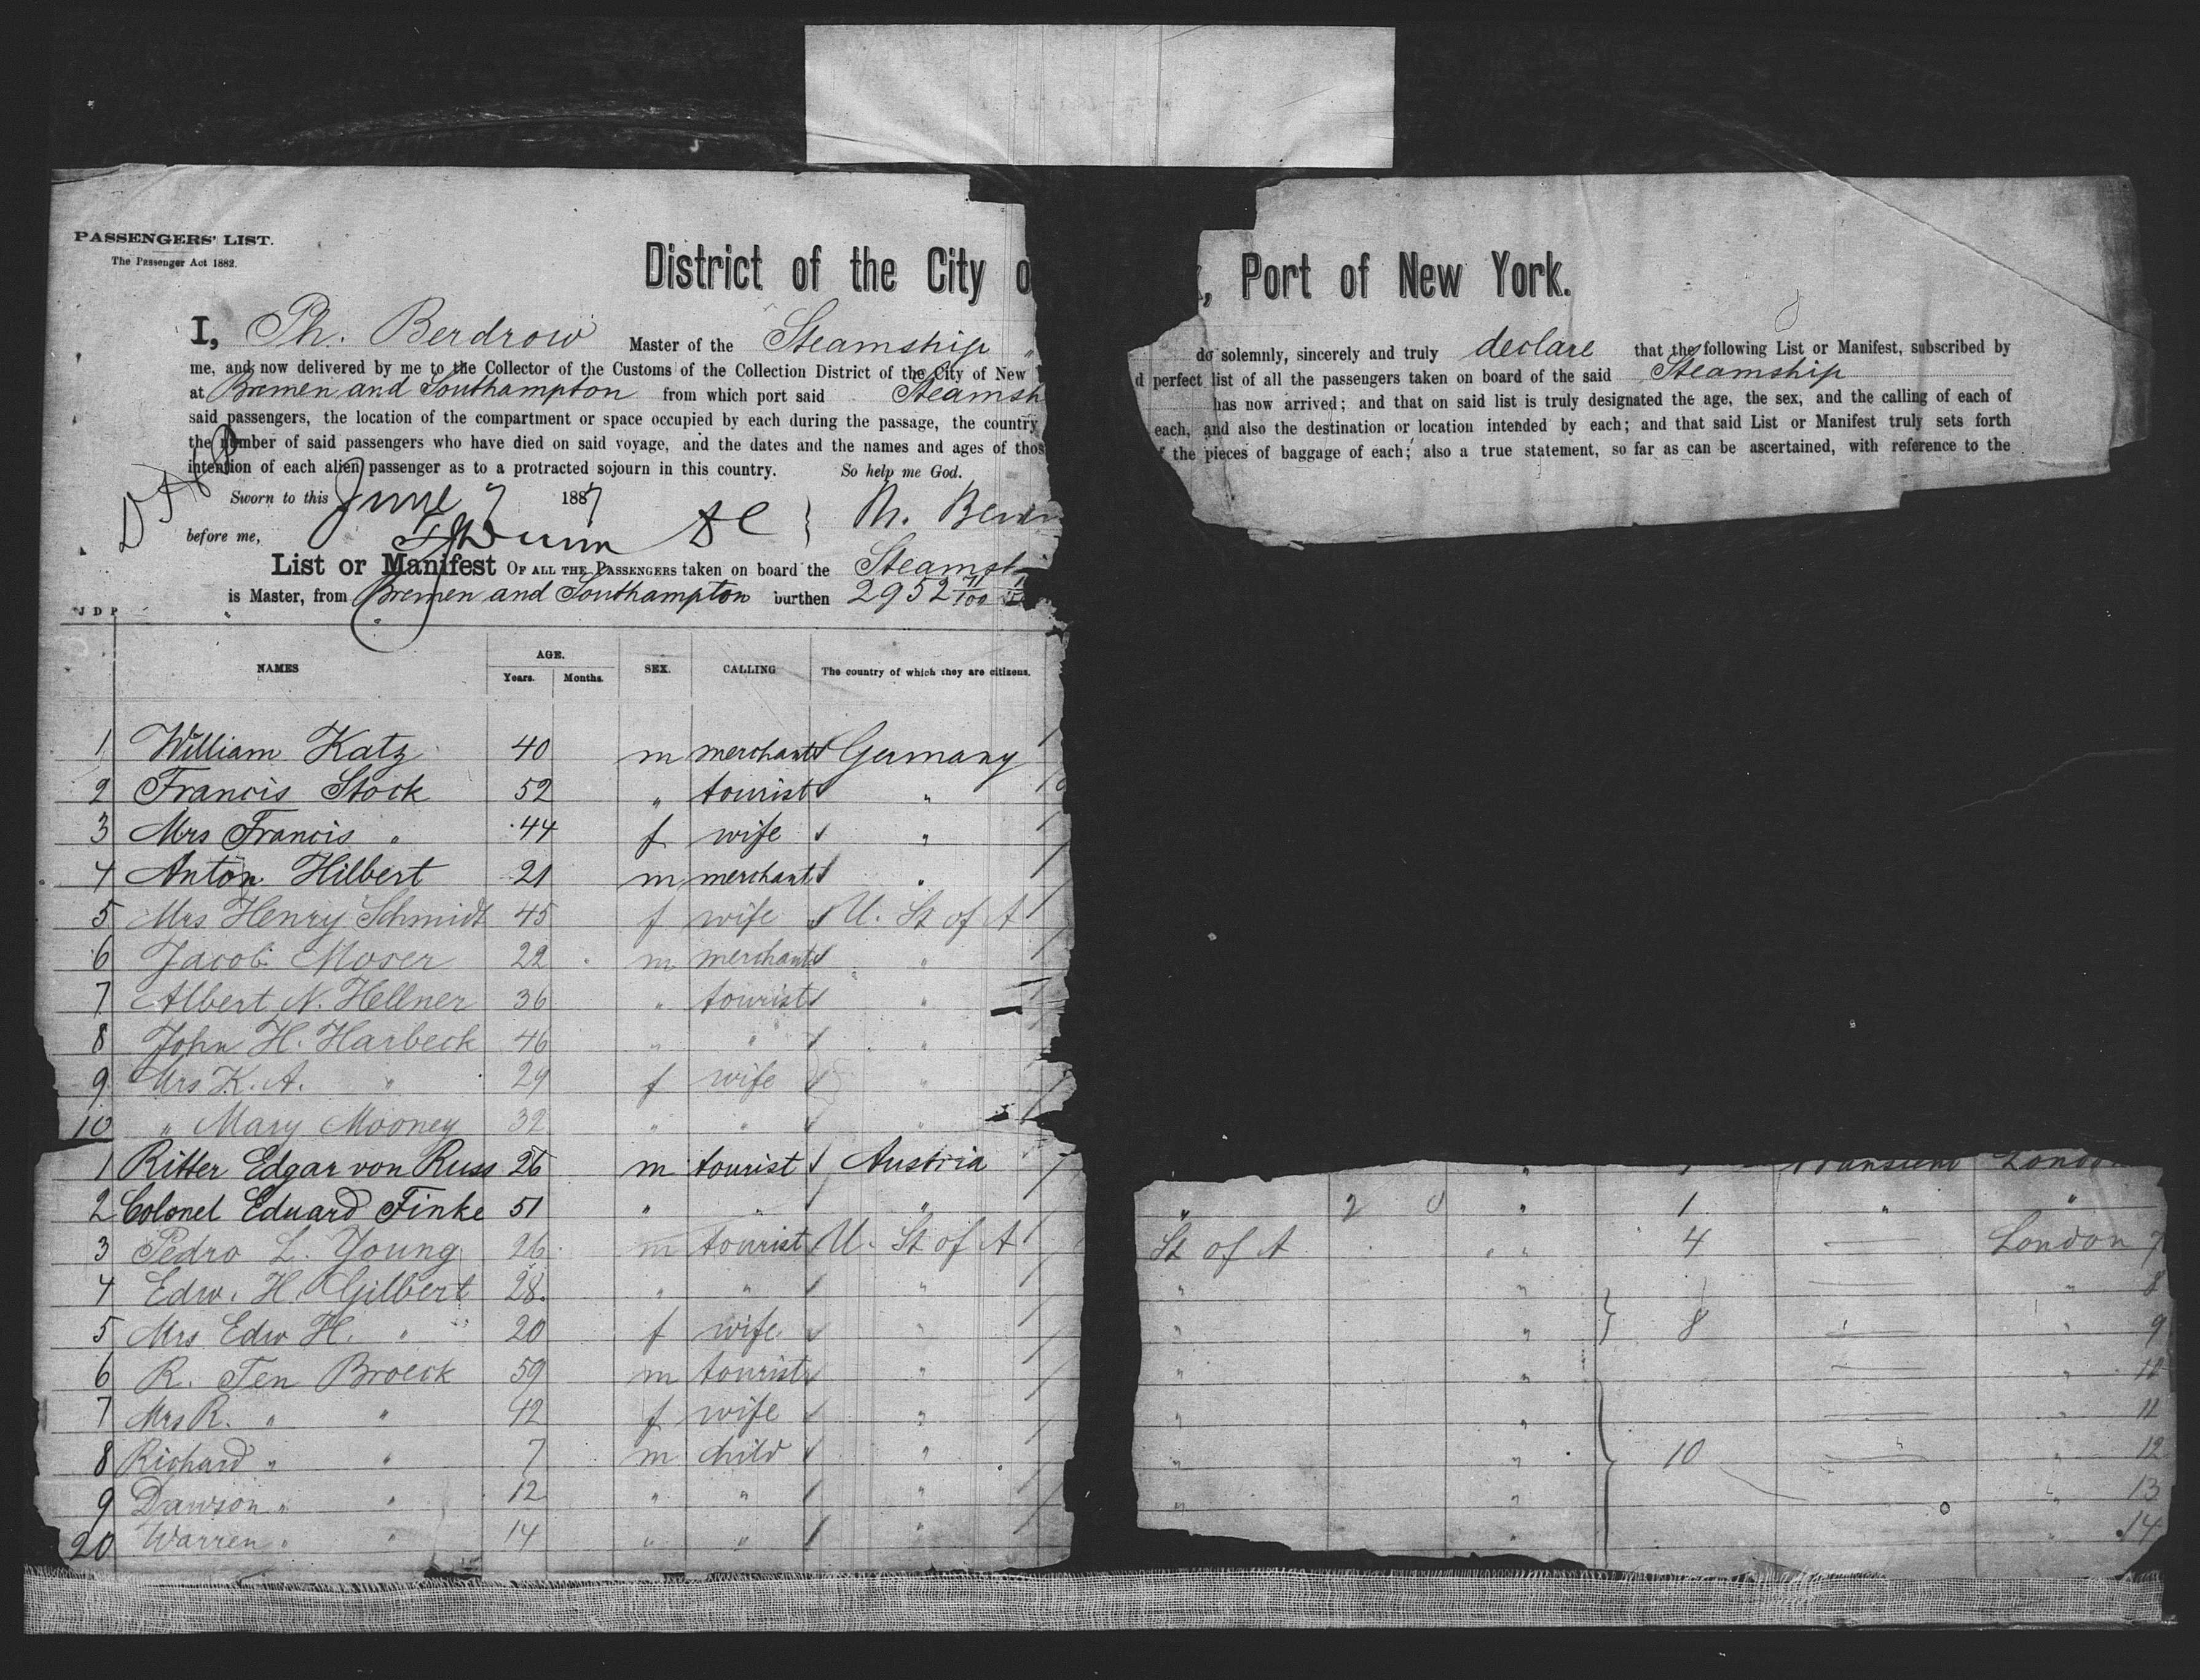 PASSENGERS' LIST.
The Passenger Act 1882.
District of the City o , Port of New York.
I, Ph. Berdrow Master of the Steamship " do solemnly, sincerely and truly declare that the following List or Manifest, subscribed by
me, and now delivered by me to the Collector of the Customs of the Collection District of the City of New d perfect list of all the passengers taken on board of the said Steamship
at Bremen and Southampton from which port said Steamsh has now arrived; and that on said list is truly designated the age, the sex, and the calling of each of
said passengers, the location of the compartment or space occupied by each during the passage, the country each, and also the destination or location intended by each; and that said List or Manifest truly sets forth
the number of said passengers who have died on said voyage, and the dates and the names and ages of thos f the pieces of baggage of each; also a true statement, so far as can be ascertained, with reference to the
intention of each alien passenger as to a protracted sojourn in this country. So help me God.
Sworn to this June 7 1887 Ph. Berdr
before me,
List or Manifest OF ALL THE PASSENGERS taken on board the Steamsh
is Master, from Bremen and Southampton burthen 2952 71/100
J D P
NAMES AGE. Years. Months. SEX. CALLING The country of which they are citizens.
1 William Katz 40 m merchant Germany
2 Francis Stock 52 " tourist "
3 Mrs Francis " 44 f wife "
4 Anton Hilbert 21 m merchant "
5 Mrs Henry Schmidt 45 f wife U. St of A
6 Jacob Moser 22 m merchant "
7 Albert N. Hellner 36 " tourist "
8 John H. Harbeck 46 " " "
9 Mrs K. A. " 29 f wife "
10 " Mary Mooney 32 " " "
1 Ritter Edgar von Russ 26 m tourist Austria " Transient London
2 Colonel Eduard Finke 51 " " " " 2 0 " 1 " "
3 Pedro L. Young 26 m tourist U. St of A St of A " 4 — London 7
4 Edw. H. Gilbert 28 " " " " " — " 8
5 Mrs Edw H. " 20 f wife " " " 8 — " 9
6 R. Ten Broeck 59 m tourist " " " — " 10
7 Mrs R. " " 42 f wife " " " — " 11
8 Richard " " 7 m child " " " 10 — " 12
9 Dawson " " 12 " " " " " — " 13
20 Warren " " 14 " " " " " 14